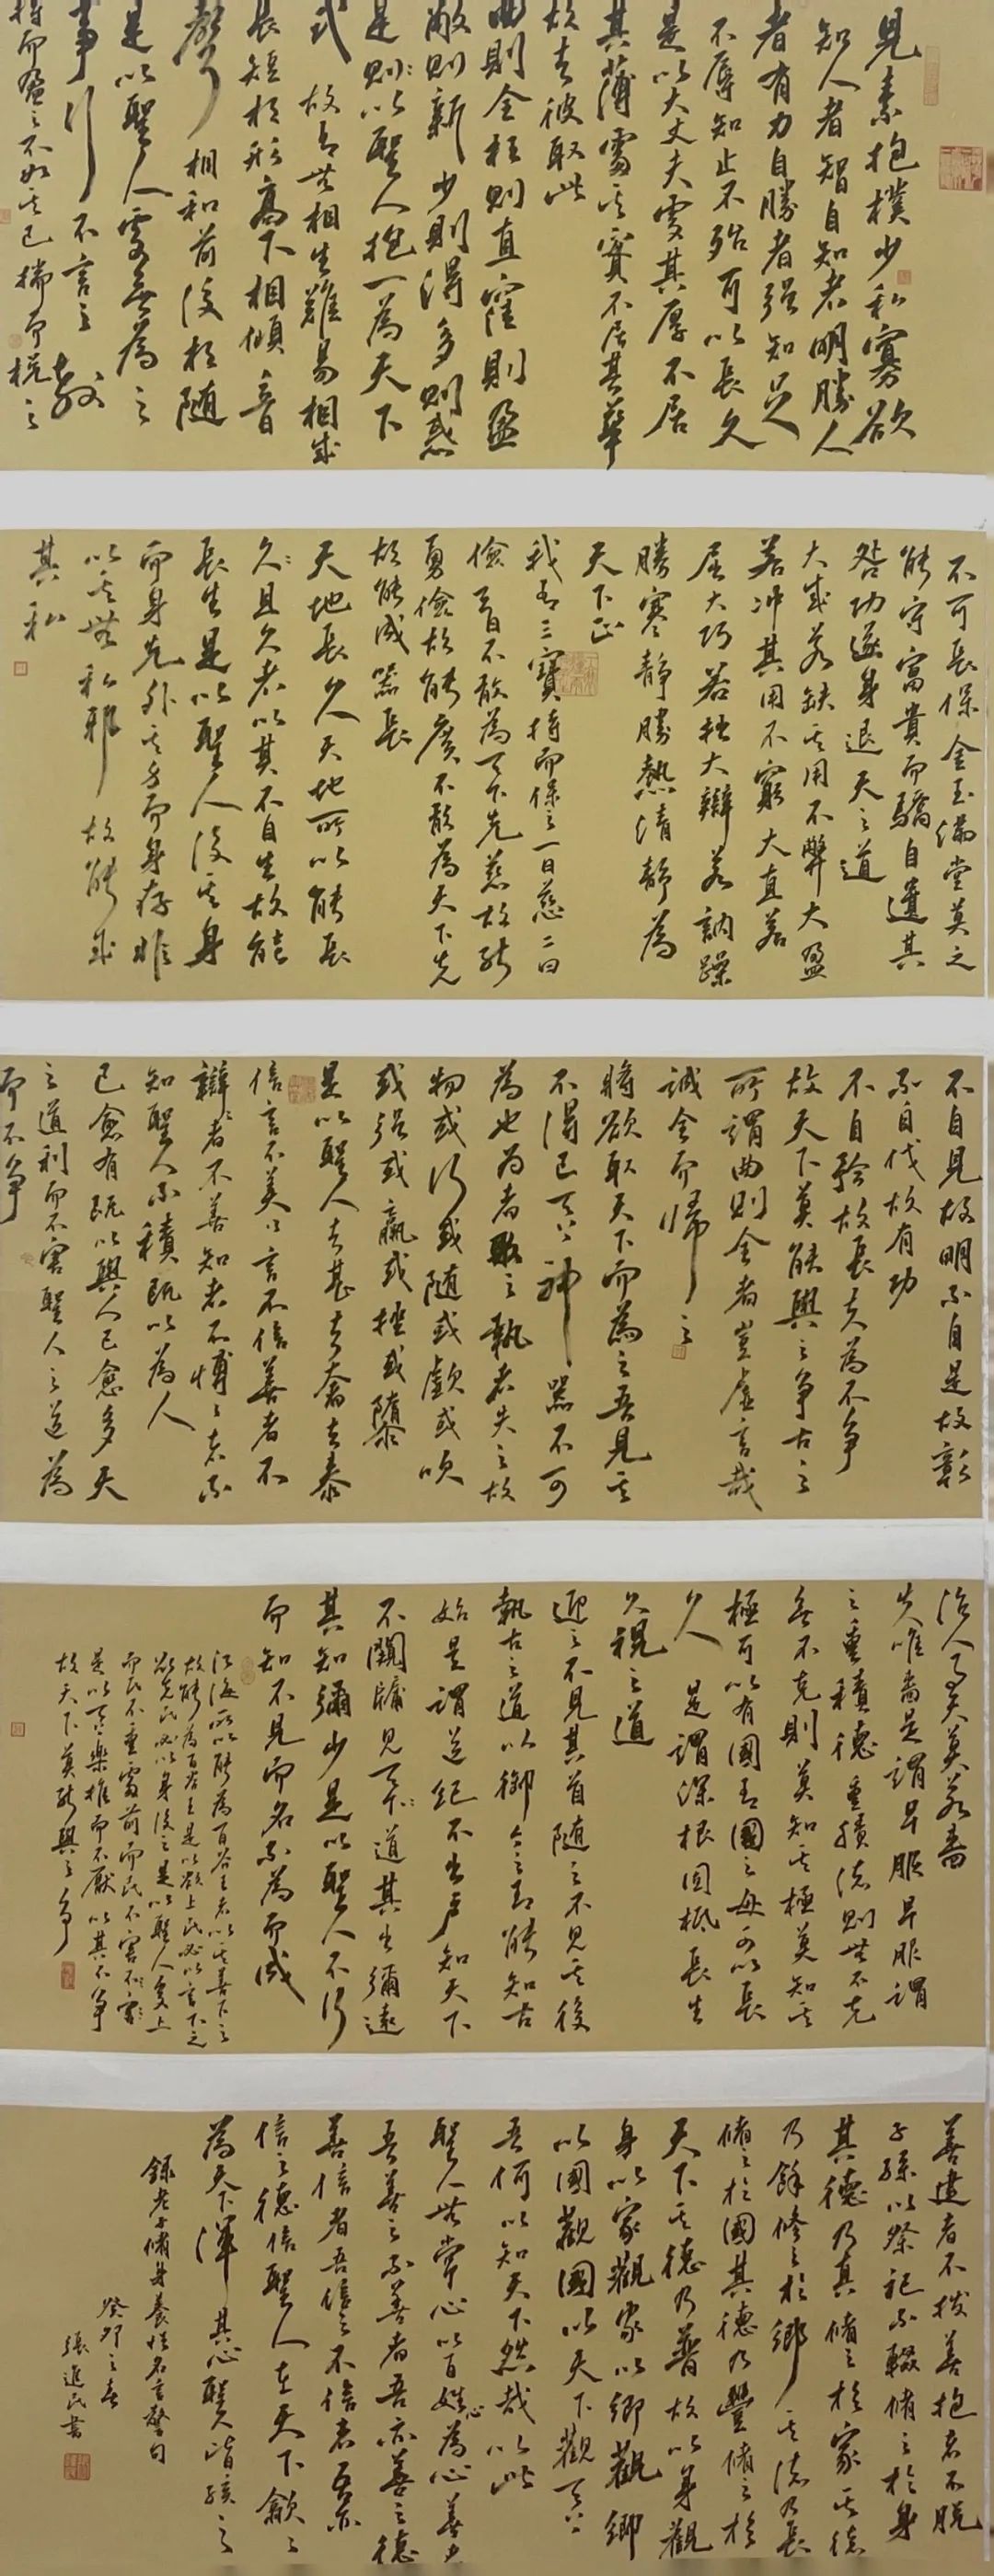 見素抱樸少私寡欲
知人者智自知者明勝人
者有力自勝者强知足
不辱知止不殆可以長久
是以大丈夫處其厚不居
其薄處其實不居其華
故去彼取此
曲則全枉則直窪則盈
敝則新少則得多則惑
是以聖人抱一為天下
式 故有無相生難易相成
長短相形高下相傾音
聲相和前後相随
是以聖人處無為之
事行不言之教
持而盈之不如其已揣而梲之
不可長保金玉滿堂莫之
能守富貴而驕自遺其
咎功遂身退天之道
大成若缺其用不弊大盈
若冲其用不窮大直若
屈大巧若拙大辯若訥躁
勝寒静勝熱清静為
天下正
我有三寶持而保之一曰慈二曰
儉三曰不敢為天下先慈故能
勇儉故能廣不敢為天下先
故能成器長
天地長久天地所以能長
久且久者以其不自生故能
長生是以聖人後其身
而身先外其身而身存非
以其無私邪故能成
其私
不自見故明不自是故彰
不自伐故有功
不自矜故長夫為不争
故天下莫能與之争古之
所謂曲則全者豈虚言哉
誠全而歸之
將欲取天下而為之吾見其
不得已天下神器不可
為也為者敗之執者失之故
物或行或随或歔或吹
或强或羸或挫或隳
是以聖人去甚去奢去泰
信言不美美言不信善者不
辯辯者不善知者不博博者不
知聖人不積既以為人
已愈有既以與人已愈多天
之道利而不害聖人之道為
而不争
治人事天莫若嗇
夫唯嗇是謂早服早服謂
之重積德重積德則無不克
無不克則莫知其極莫知其
極可以有國有國之母可以長
久 是謂深根固柢長生
久視之道
迎之不見其首随之不見其後
執古之道以御今之有能知古
始是謂道紀不出户知天下
不闚牖見天道其出彌遠
其知彌少是以聖人不行
而知不見而名不為而成
江海所以能為百谷王者以其善下之
故能為百谷王是以欲上民必以言下之
欲先民必以身後之是以聖人處上
而民不重處前而民不害
是以天下樂推而不厭以其不争
故天下莫能與之争
善建者不拔善抱者不脱
子孫以祭祀不輟脩之於身
其德乃真脩之於家其德
乃餘修之於鄉其德乃長
脩之於國其德乃豐脩之於
天下其德乃普故以身觀
身以家觀家以鄉觀鄉
以國觀國以天下觀天下
吾何以知天下然哉以此
聖人無常心以百姓心為心善者
吾善之不善者吾亦善之德
善信者吾信之不信者吾亦
信之德信聖人在天下歙歙
為天下渾其心聖人皆孩之
錄老子脩身養性名言警句
癸卯之春
張進民書